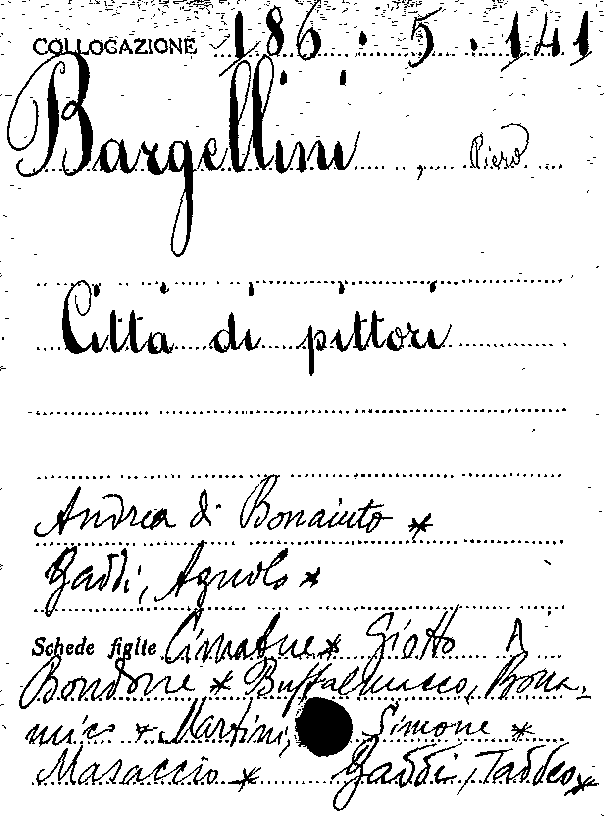 COLLOCAZIONE 186.5.141
Bargellini, Piero
Città di pittori
Andrea di Bonaiuto *
Gaddi, Agnolo *
Schede figlie Cimabue * Giotto
Bondone * Buffalmacco, Bona-
mico * Martini, Simone *
Masaccio * Gaddi, Taddeo *